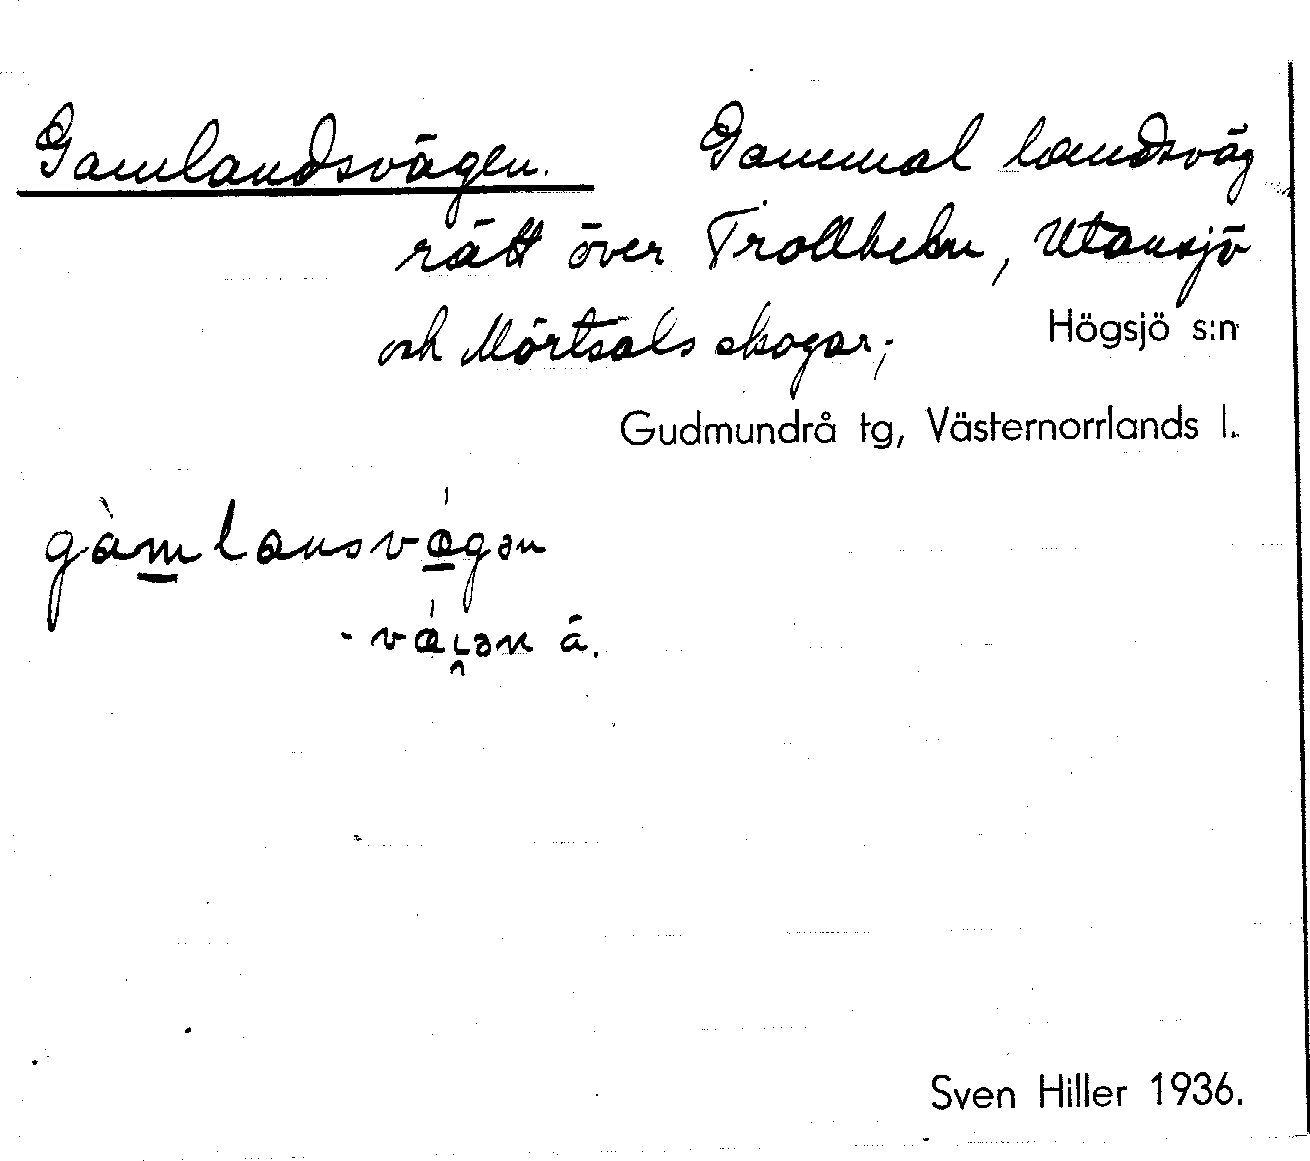 Gamlandsvägen. Gammal landsväg
rätt över Trollhehn, Utansjö
och Mörtsals skogar;
Högsjö s:n
Gudmundrå tg, Västernorrlands l.
gàmlansvǽgən
-vǽi̯ən ä.
Sven Hiller 1936.